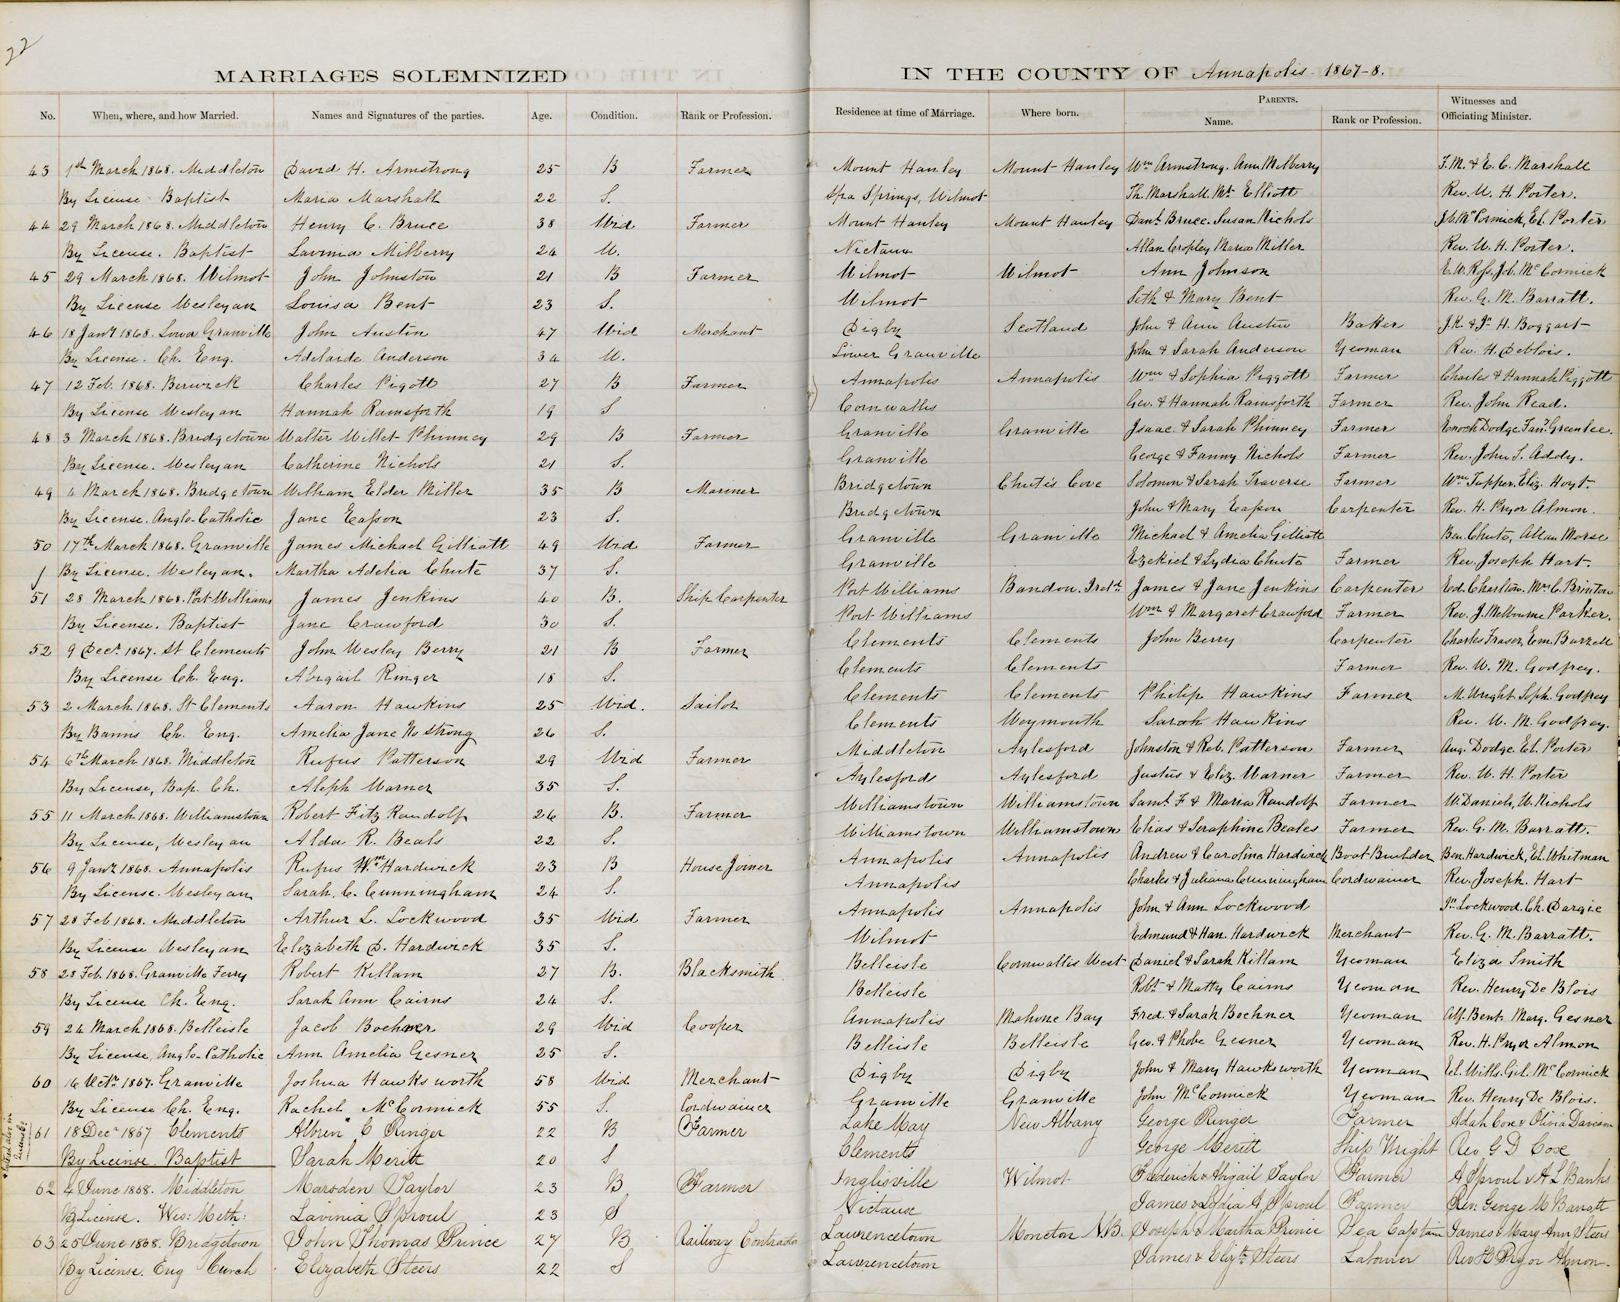 22
MARRIAGES SOLEMNIZED IN THE COUNTY OF Annapolis 1867-8.
No. When, where, and how Married. Names and Signatures of the parties. Age. Condition. Rank or Profession. Residence at time of Marriage. Where born. PARENTS. Name. Rank or Profession. Witnesses and Officiating Minister.
43 1st March 1868. Middleton David H. Armstrong 25 B Farmer Mount Hanley Mount Hanley Wm Armstrong. Ann Milberry T. M. & E. C. Marshall
By License Baptist Maria Marshall 22 S. Spa Springs, Wilmot Th. Marshall Elliott Rev. W. H. Porter.
44 29 March 1868. Middleton Henry C. Bruce 38 Wid Farmer Mount Hanley Mount Hanley Danl. Bruce. Susan Nichols J.C. McCormick, Ed. Porter
By License. Baptist Lavinia Milberry 24 W. Nictaux Allan Cropley Maria Miller Rev. W. H. Porter.
45 29 March 1868. Wilmot John Johnston 21 B Farmer Wilmot Wilmot Ann Johnson E. W. Ross, Job. McCormick
By License Wesleyan Louisa Bent 23 S. Wilmot Seth & Mary Bent Rev. G. M. Barratt.
46 18 Jany 1868. Lower Granville John Austin 47 Wid Merchant Digby Scotland John & Ann Austin Baker J. K. & Jn H. Boggart
By License. Ch. Eng. Adelaide Anderson 34 W. Lower Granville John & Sarah Anderson Yeoman Rev. H. Deblois.
47 12 Feb. 1868. Berwick Charles Pigott 27 B Farmer Annapolis Annapolis Wm & Sophia Piggott Farmer Charles & Hannah Piggott
By License Wesleyan Hannah Rainsforth 19 S Cornwallis Geo. & Hannah Rainsforth Farmer Rev. John Read.
48 3 March 1868. Bridgetown Walter Willet Phinney 29 B Farmer Granville Granville Isaac & Sarah Phinney Farmer Enoch Dodge. Fany Greenlee.
By License. Wesleyan Catherine Nichols 21 S. Granville George & Fanny Nichols Farmer Rev. John S. Addy.
49 4 March 1868. Bridgetown William Elder Miller 35 B Mariner Bridgetown Chute's Cove Solomon & Sarah Traverse Farmer Wm Tupper. Eliz. Hoyt.
By License. Anglo-Catholic Jane Eason 23 S. Bridgetown John & Mary Eason Carpenter Rev. H. Pryor Almon.
50 17th March 1868. Granville James Michael Gilliatt 49 Wid Farmer Granville Granville Michael & Amelia Gilliatt Ben. Chute, Allan Morse
By License. Wesleyan. Martha Adelia Chute 37 S. Granville Ezekiel & Lydia Chute Farmer Rev. Joseph Hart.
51 28 March 1868. Port Williams James Jenkins 40 B. Ship Carpenter Port Williams Bandon. Ireld. James & Jane Jenkins Carpenter Ed. Charlton. Wm C. Brinton
By License. Baptist Jane Crawford 30 S. Port Williams Wm & Margaret Crawford Farmer Rev. J. Melbourne Parker.
52 9 Decr. 1867. St Clements John Wesley Berry 21 B Farmer Clements Clements John Berry Carpenter Charles Fraser, Em. Buzzell
By License Ch. Eng. Abigail Ringer 18 S. Clements Clements Farmer Rev. W. M. Godfrey.
53 2 March 1868. St Clements Aaron Hawkins 25 Wid. Sailor Clements Clements Philip Hawkins Farmer M. Wright Soph. Godfrey
By Banns Ch. Eng. Amelia Jane Mc Strong 26 S. Clements Weymouth Sarah Hawkins Rev. W. M. Godfrey.
54 6th March 1868. Middleton Rufus Patterson 29 Wid Farmer Middleton Aylesford Johnston & Reb. Patterson Farmer Aug. Dodge Ed. Porter
By License, Bap. Ch. Aleph Warner 35 S. Aylesford Aylesford Justus & Eliz. Warner Farmer Rev. W. H. Porter
55 11 March 1868. Williamstown Robert Fitz Randolf 26 B. Farmer Williamstown Williamstown Saml. F. & Maria Randolf Farmer W. Daniels, W. Nichols
By License, Wesleyan Alda R. Beals 22 S. Williamstown Williamstown Elias & Seraphine Beales Farmer Rev. G. M. Barratt.
56 9 Jany 1868. Annapolis Rufus Wm Hardwick 23 B House Joiner Annapolis Annapolis Andrew & Caroline Hardwick Boat Builder Ben. Hardwick, Ed. Whitman
By License. Wesleyan Sarah. C. Cunningham 24 S. Annapolis Charles & Juliana Cunningham Cordwainer Rev. Joseph. Hart
57 28 Feb 1868. Middleton Arthur L. Lockwood 35 Wid Farmer Annapolis Annapolis John & Ann Lockwood Jn. Lockwood. Ch. Dargie
By License Wesleyan Elizabeth D. Hardwick 35 S. Wilmot Edmund & Han. Hardwick Merchant Rev. G. M. Barratt.
58 23 Feb. 1868. Granville Ferry Robert Killam 27 B. Blacksmith Belleisle Cornwallis West Daniel & Sarah Killam Yeoman Eliza Smith
By License Ch. Eng. Sarah Ann Cairns 24 S. Belleisle Robt. & Matty Cairns Yeoman Rev. Henry De Blois
59 24 March 1868. Belleisle Jacob Boehner 29 Wid Cooper Annapolis Mahone Bay Fred. & Sarah Boehner Yeoman Alf. Bent. Marg. Gesner
By License, Anglo-Catholic Ann Amelia Gesner 25 S. Belleisle Belleisle Geo. & Phebe Gesner Yeoman Rev. H. Pryor Almon
60 16 Octr. 1867. Granville Joshua Hawksworth 58 Wid Merchant Digby Digby John & Mary Hawksworth Yeoman Ed. Witts. Gil. McCormick
By License Ch. Eng. Rachel McCormick 55 S. Cordwainer Granville Granville John McCormick Yeoman Rev. Henry De Blois.
61 18 Decr 1867 Clements Albren C Ringer 22 B Farmer Lake May New Albany George Ringer Farmer Adah Cox & Olivia Davison
By License. Baptist Sarah Meritt 20 S Clements George Meritt Ship Wright Rev G D Cox
62 4 June 1868. Middleton Marsden Taylor 23 B Farmer Inglisville Wilmot Frederick & Abigail Taylor Farmer A Sproul & A L Banks
By License. Wes: Meth: Lavinia Sproul 23 S Nictaux James & Lydia A Sproul Farmer Rev. George M Barratt
63 25 June 1868. Bridgetown John Thomas Prince 27 B Railway Contractor Lawrencetown Moncton N.B. Joseph & Martha Prince Sea Captain James & Mary Ann Steers
By License. Eng Curch Elizabeth Steers 22 S Lawrencetown James & Elizth. Steers Labourer Rev H Pryor Almon.